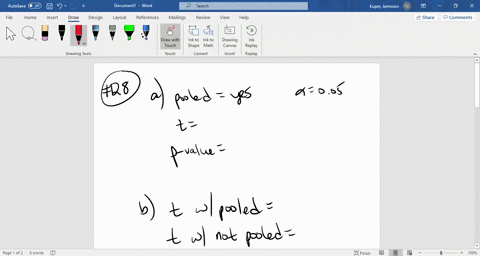 AutoSave Off
Document1 - Word
Search
Kuper, Jameson
File Home Insert Draw Design Layout References Mailings Review View Help
Share
Comments
Draw with Touch
Ink to Shape
Ink to Math
Drawing Canvas
Ink Replay
Drawing Tools
Touch
Convert
Insert
Replay
#128
a) pooled = yes α = 0.05
t =
p-value =
b) t w/ pooled =
t w/ not pooled =
Page 1 of 2 0 words
Focus
100%